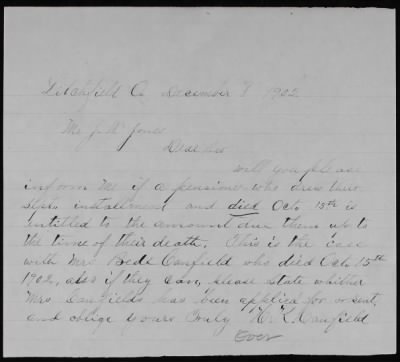 Litchfield O. December 8 1902
Mr J. W. Jones
Dear Sir
will you please
inform me if a pensioner who drew their
Sept. installment and died Oct. 15th is
entitled to the amount due them up to
the time of their death. This is the case
with Mrs Bede Canfield who died Oct. 15th
1902, also if they can, please state whether
Mrs Canfields has been applied for or sent,
and oblige yours Truly H. K. Canfield
Over